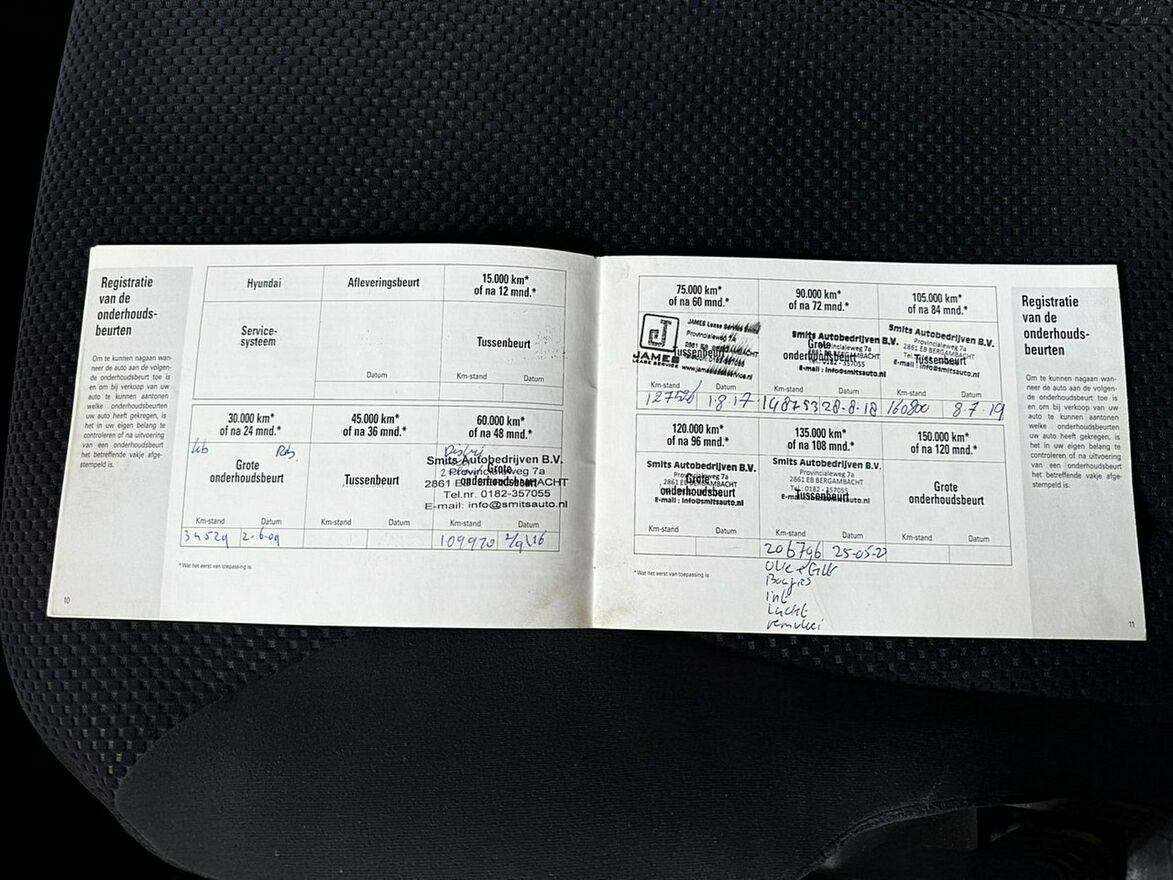 Registratie
van de
onderhouds-
beurten
Om te kunnen nagaan wan-
neer de auto aan de volgen-
de onderhoudsbeurt toe is
en om bij verkoop van uw
auto te kunnen aantonen
welke onderhoudsbeurten
uw auto heeft gekregen, is
het in uw eigen belang te
controleren of na uitvoering
van een onderhoudsbeurt
het betreffende vakje afge-
stempeld is.
10
Hyundai
Service-
systeem
Afleveringsbeurt
Datum
15.000 km*
of na 12 mnd.*
Tussenbeurt
Km-stand Datum
30.000 km*
of na 24 mnd.*
Grote
onderhoudsbeurt
Km-stand Datum
34529 2-6-09
45.000 km*
of na 36 mnd.*
Tussenbeurt
Km-stand Datum
60.000 km*
of na 48 mnd.*
Smits Autobedrijven B.V.
Grote
Provincialeweg 7a
onderhoudsbeurt
2861 EB BERGAMBACHT
Tel.nr. 0182-357055
E-mail: info@smitsauto.nl
Km-stand Datum
109970
*Wat het eerst van toepassing is.
75.000 km*
of na 60 mnd.*
JAMES
LEASE SERVICE
JAMES Lease Service
Provincialeweg 7a
2861 EB BERGAMBACHT
Tussenbeurt
Km-stand Datum
127526 1-8-17
90.000 km*
of na 72 mnd.*
Smits Autobedrijven B.V.
Grote
Provincialeweg 7a
onderhoudsbeurt
2861 EB BERGAMBACHT
0182-357055
E-mail: info@smitsauto.nl
Km-stand Datum
148753 28-8-18
105.000 km*
of na 84 mnd.*
Smits Autobedrijven B.V.
Provincialeweg 7a
2861 EB BERGAMBACHT
Tussenbeurt
E-mail: info@smitsauto.nl
Km-stand Datum
160800 8-7-19
120.000 km*
of na 96 mnd.*
Smits Autobedrijven B.V.
Provincialeweg 7a
Grote
2861 EB BERGAMBACHT
onderhoudsbeurt
E-mail: info@smitsauto.nl
Km-stand Datum
135.000 km*
of na 108 mnd.*
Smits Autobedrijven B.V.
Provincialeweg 7a
2861 EB BERGAMBACHT
Tel.: 0182-357055
Tussenbeurt
E-mail: info@smitsauto.nl
Km-stand Datum
206796
150.000 km*
of na 120 mnd.*
Grote
onderhoudsbeurt
Km-stand Datum
*Wat het eerst van toepassing is.
Bougies
int
Lucht
remvloei
Registratie
van de
onderhouds-
beurten
Om te kunnen nagaan wan-
neer de auto aan de volgen-
de onderhoudsbeurt toe is
en om bij verkoop van uw
auto te kunnen aantonen
welke onderhoudsbeurten
uw auto heeft gekregen, is
het in uw eigen belang te
controleren of na uitvoering
van een onderhoudsbeurt
het betreffende vakje afge-
stempeld is.
11